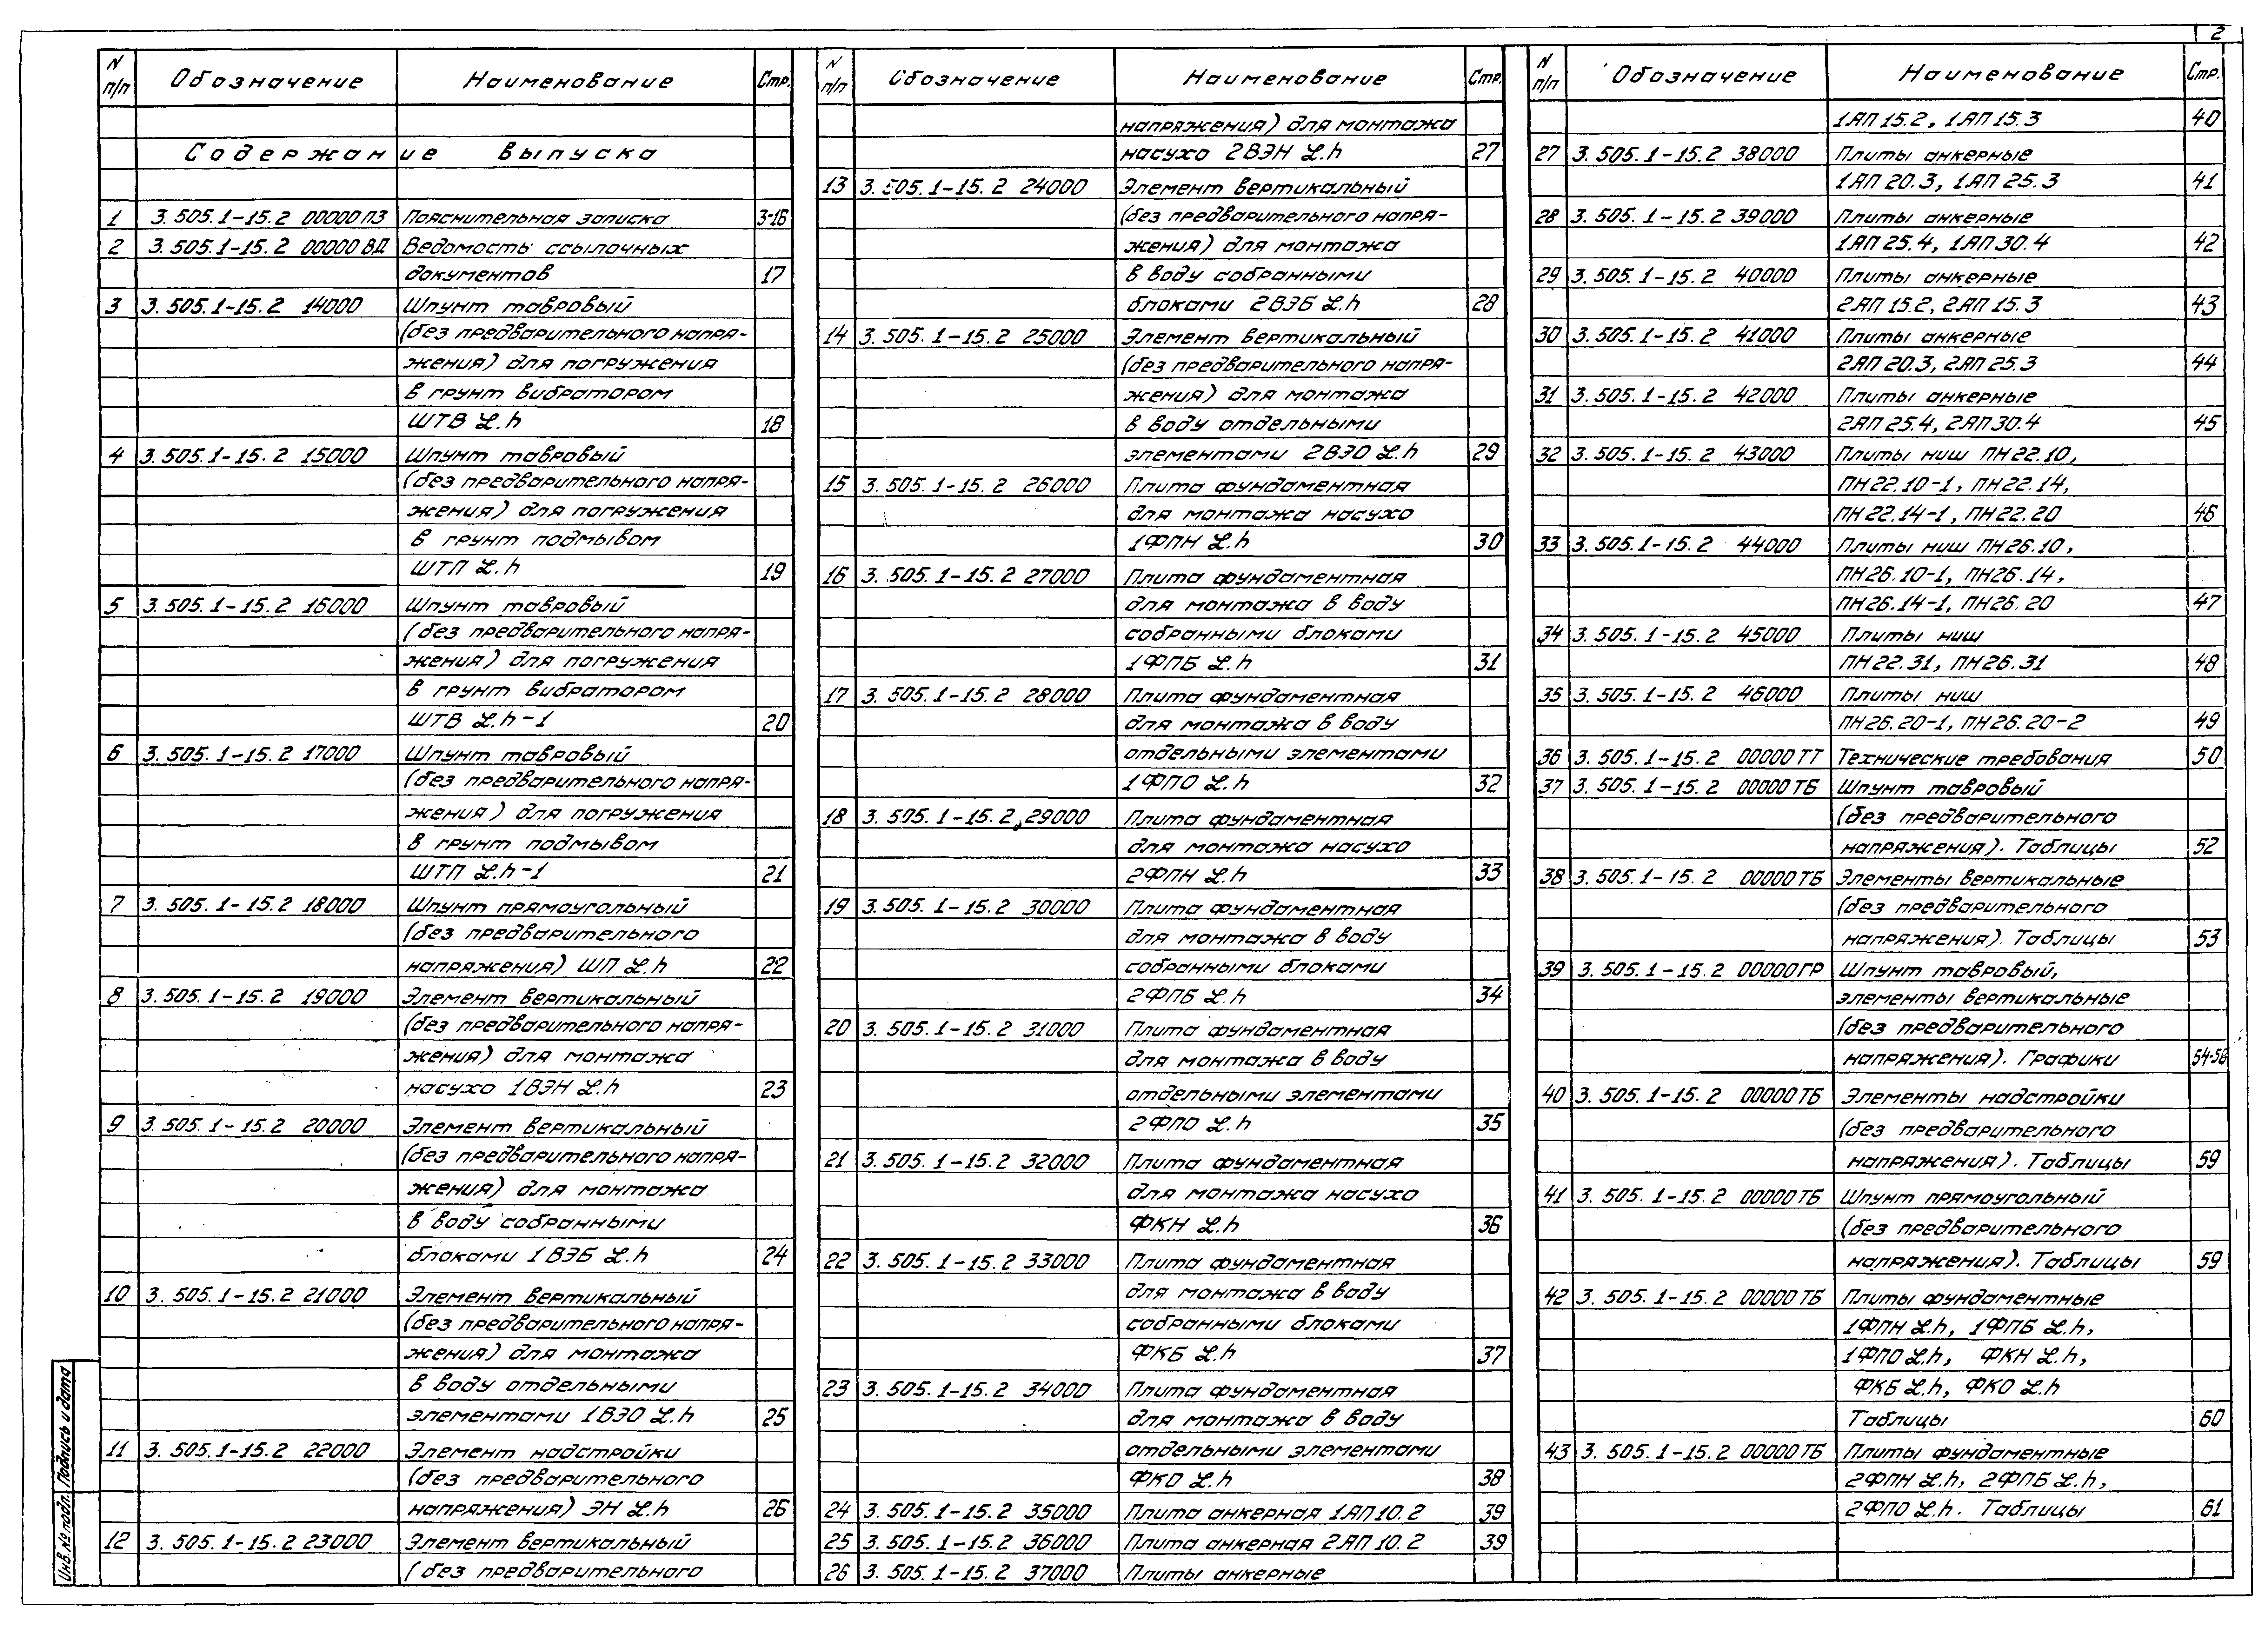 2
N п/п Обозначение Наименование Стр.
Содержание выпуска
1 3.505.1-15.2 00000ПЗ Пояснительная записка 3-16
2 3.505.1-15.2 00000ВД Ведомость ссылочных
документов 17
3 3.505.1-15.2 14000 Шпунт тавровый
(без предварительного напря-
жения) для погружения
в грунт вибратором
ШТВ L.h 18
4 3.505.1-15.2 15000 Шпунт тавровый
(без предварительного напря-
жения) для погружения
в грунт подмывом
ШТП L.h 19
5 3.505.1-15.2 16000 Шпунт тавровый
(без предварительного напря-
жения) для погружения
в грунт вибратором
ШТВ L.h-1 20
6 3.505.1-15.2 17000 Шпунт тавровый
(без предварительного напря-
жения) для погружения
в грунт подмывом
ШТП L.h-1 21
7 3.505.1-15.2 18000 Шпунт прямоугольный
(без предварительного
напряжения) ШП L.h 22
8 3.505.1-15.2 19000 Элемент вертикальный
(без предварительного напря-
жения) для монтажа
насухо 1ВЭН L.h 23
9 3.505.1-15.2 20000 Элемент вертикальный
(без предварительного напря-
жения) для монтажа
в воду собранными
блоками 1ВЭБ L.h 24
10 3.505.1-15.2 21000 Элемент вертикальный
(без предварительного напря-
жения) для монтажа
в воду отдельными
элементами 1ВЭО L.h 25
11 3.505.1-15.2 22000 Элемент надстройки
(без предварительного
напряжения) ЭН L.h 26
12 3.505.1-15.2 23000 Элемент вертикальный
(без предварительного
N п/п Обозначение Наименование Стр.
напряжения) для монтажа
насухо 2ВЭН L.h 27
13 3.505.1-15.2 24000 Элемент вертикальный
(без предварительного напря-
жения) для монтажа
в воду собранными
блоками 2ВЭБ L.h 28
14 3.505.1-15.2 25000 Элемент вертикальный
(без предварительного напря-
жения) для монтажа
в воду отдельными
элементами 2ВЭО L.h 29
15 3.505.1-15.2 26000 Плита фундаментная
для монтажа насухо
1ФПН L.h 30
16 3.505.1-15.2 27000 Плита фундаментная
для монтажа в воду
собранными блоками
1ФПБ L.h 31
17 3.505.1-15.2 28000 Плита фундаментная
для монтажа в воду
отдельными элементами
1ФПО L.h 32
18 3.505.1-15.2 29000 Плита фундаментная
для монтажа насухо
2ФПН L.h 33
19 3.505.1-15.2 30000 Плита фундаментная
для монтажа в воду
собранными блоками
2ФПБ L.h 34
20 3.505.1-15.2 31000 Плита фундаментная
для монтажа в воду
отдельными элементами
2ФПО L.h 35
21 3.505.1-15.2 32000 Плита фундаментная
для монтажа насухо
ФКН L.h 36
22 3.505.1-15.2 33000 Плита фундаментная
для монтажа в воду
собранными блоками
ФКБ L.h 37
23 3.505.1-15.2 34000 Плита фундаментная
для монтажа в воду
отдельными элементами
ФКО L.h 38
24 3.505.1-15.2 35000 Плита анкерная 1АП10.2 39
25 3.505.1-15.2 36000 Плита анкерная 2АП10.2 39
26 3.505.1-15.2 37000 Плиты анкерные
N п/п Обозначение Наименование Стр.
1АП15.2, 1АП15.3 40
27 3.505.1-15.2 38000 Плиты анкерные
1АП20.3, 1АП25.3 41
28 3.505.1-15.2 39000 Плиты анкерные
1АП25.4, 1АП30.4 42
29 3.505.1-15.2 40000 Плиты анкерные
2АП15.2, 2АП15.3 43
30 3.505.1-15.2 41000 Плиты анкерные
2АП20.3, 2АП25.3 44
31 3.505.1-15.2 42000 Плиты анкерные
2АП25.4, 2АП30.4 45
32 3.505.1-15.2 43000 Плиты ниш ПН22.10,
ПН22.10-1, ПН22.14,
ПН22.14-1, ПН22.20 46
33 3.505.1-15.2 44000 Плиты ниш ПН26.10,
ПН26.10-1, ПН26.14,
ПН26.14-1, ПН26.20 47
34 3.505.1-15.2 45000 Плиты ниш
ПН22.31, ПН26.31 48
35 3.505.1-15.2 46000 Плиты ниш
ПН26.20-1, ПН26.20-2 49
36 3.505.1-15.2 00000ТТ Технические требования 50
37 3.505.1-15.2 00000ТБ Шпунт тавровый
(без предварительного
напряжения). Таблицы 52
38 3.505.1-15.2 00000ТБ Элементы вертикальные
(без предварительного
напряжения). Таблицы 53
39 3.505.1-15.2 00000ГР Шпунт тавровый,
элементы вертикальные
(без предварительного
напряжения). Графики 54-58
40 3.505.1-15.2 00000ТБ Элементы надстройки
(без предварительного
напряжения). Таблицы 59
41 3.505.1-15.2 00000ТБ Шпунт прямоугольный
(без предварительного
напряжения). Таблицы 59
42 3.505.1-15.2 00000ТБ Плиты фундаментные
1ФПН L.h, 1ФПБ L.h,
1ФПО L.h, ФКН L.h,
ФКБ L.h, ФКО L.h
Таблицы 60
43 3.505.1-15.2 00000ТБ Плиты фундаментные
2ФПН L.h, 2ФПБ L.h,
2ФПО L.h. Таблицы 61
Инв.№ подл. Подпись и дата